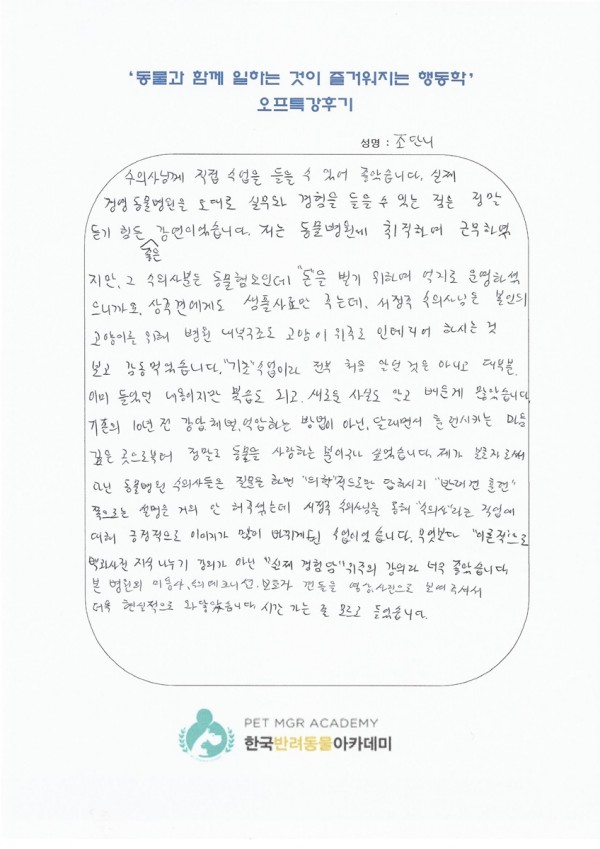 '동물과 함께 일하는 것이 즐거워지는 행동학'
오프특강후기
성명 : 조단니
수의사님께 직접 수업을 들을 수 있어 좋았습니다. 실제
경영 동물병원을 토대로 실무와 경험을 들을 수 있는 점은 정말
듣기 힘든 강연이었습니다. 저는 동물병원에 취직하여 근무하였
좋은
지만, 그 수의사분은 동물혐오인데 "돈"을 벌기 위하여 억지로 운영하셨
드니까요, 상주견에게도 샘플사료만 주는데, 서정주 수의사님은 본인의
고양이를 위해 병원 내부구조도 고양이 위주로 인테리어 하시는 것
보고 감동먹었습니다. "기초"수업이라 전혀 처음 안 것은 아니고 대부분
이미 들었던 내용이지만 복습도 되고, 새로운 사실도 알고 배운게 많았습니다.
기존의 10년 전 강압, 체벌, 억압하는 방법이 아닌, 달래면서 훈련시키는 마음
깊은 곳으로부터 정말로 동물을 사랑하는 분이구나 싶었습니다. 제가 보호자로써
다닌 동물병원 수의사들은 질문을 하면 "의학"적으로만 답하시지 "반려견 훈련"
쪽으로는 설명을 거의 안 해주셨는데 서정주 수의사님을 통해 "수의사"라는 직업에
대해 긍정적으로 이미지가 많이 바뀌게된 수업이었습니다. 무엇보다 "이론적"으로
백과사전 지식 나누기 강의가 아닌 "실제 경험담"위주의 강의라 너무 좋았습니다.
본 병원의 미용사, 수의테크니션, 보호자 건들을 영상, 사진으로 보여주셔서
더욱 현실적으로 와닿았습니다. 시간 가는 줄 모르고 들었습니다.
PET MGR ACADEMY
한국반려동물아카데미